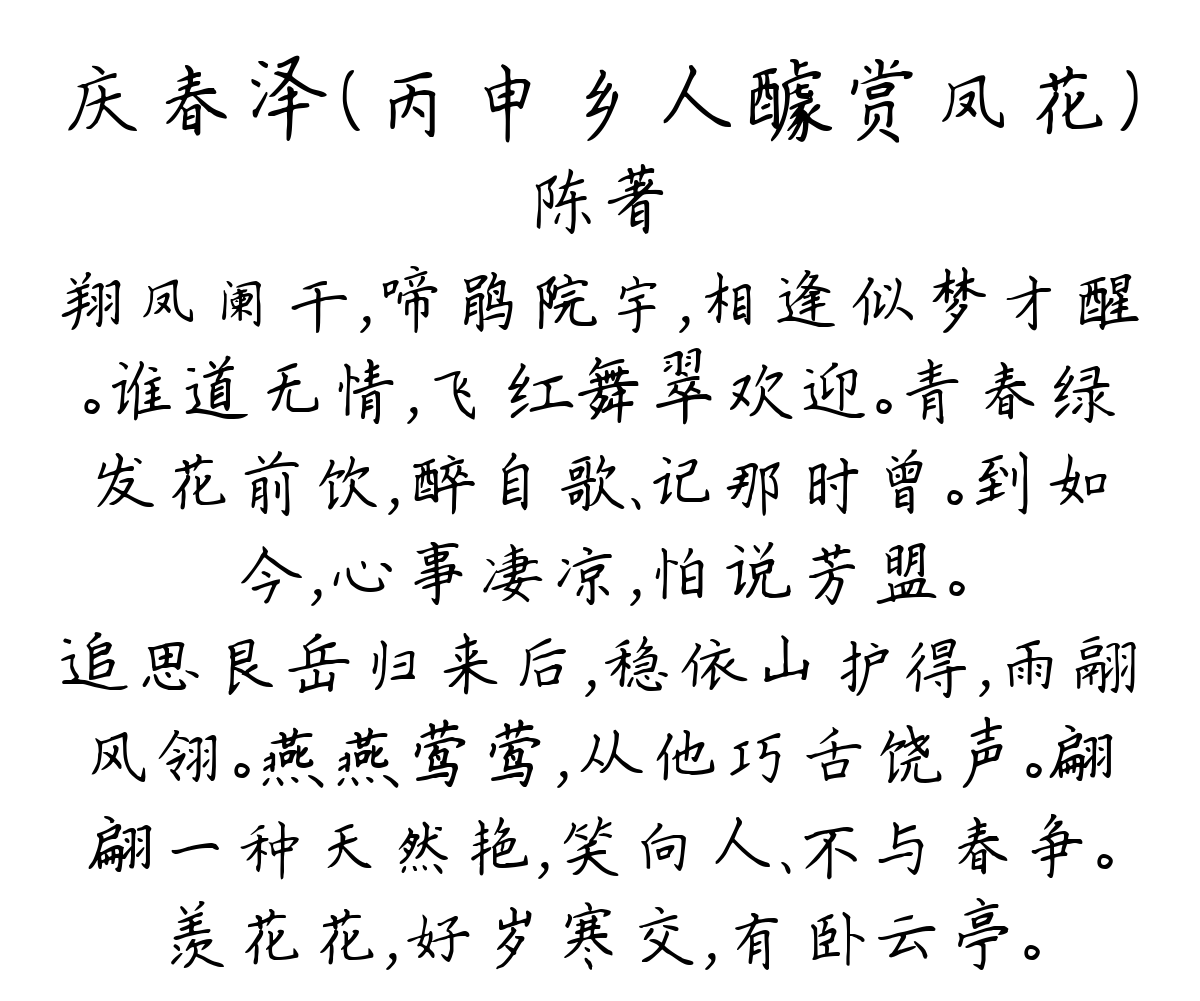 庆春泽(丙申乡人醵赏凤花)
陈著
翔凤阑干,啼鹃院宇,相逢似梦才醒
。谁道无情,飞红舞翠欢迎。青春绿
发花前饮,醉自歌、记那时曾。到如
今,心事凄凉,怕说芳盟。
追思艮岳归来后,稳依山护得,雨翮
风翎。燕燕莺莺,从他巧舌饶声。翩
翩一种天然艳,笑向人、不与春争。
羡花花,好岁寒交,有卧云亭。